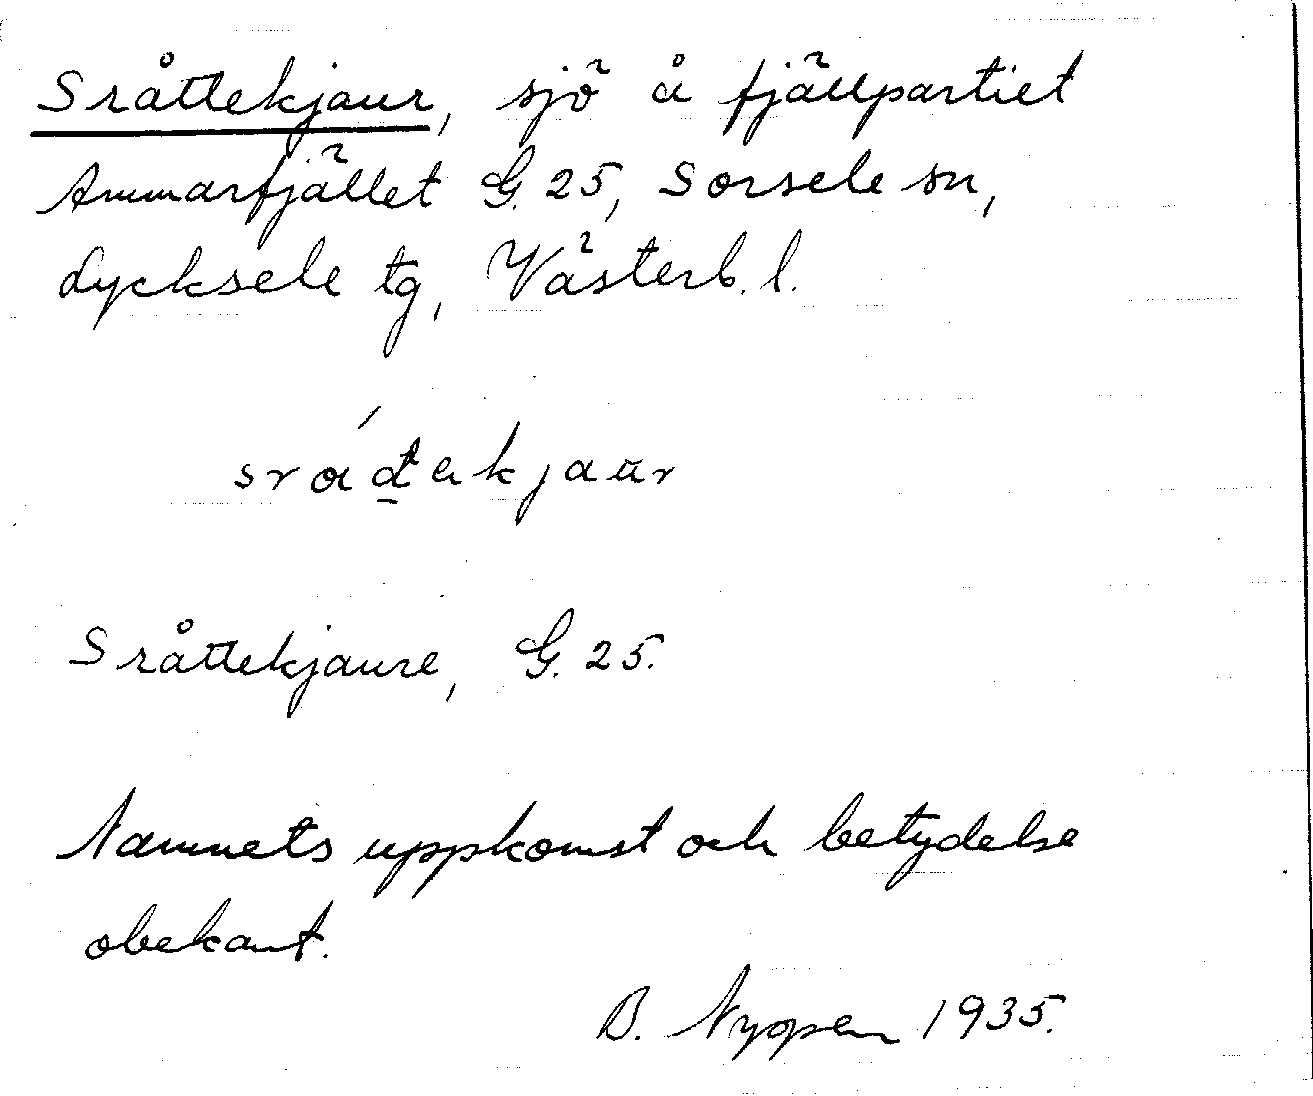 Sråttekjaur, sjö å fjällpartiet
Ammarfjället G. 25, Sorsele sn,
Lycksele tg, Västerb. l.
Sråttekjaure, G. 25.
Namnets uppkomst och betydelse
obekant.
B. 1935.